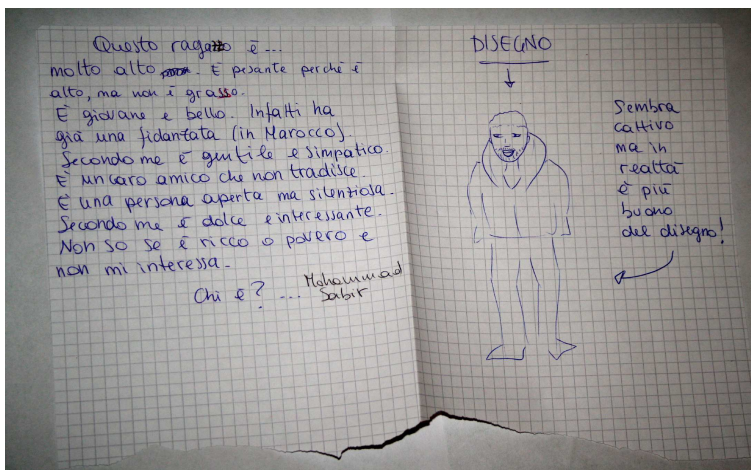 Questo ragazzo è...
molto alto. È pesante perché è
alto, ma non è grasso.
È giovane e bello. Infatti ha
già una fidantata (in Marocco).
Secondo me è gentile e simpatico.
È un caro amico che non tradisce.
È una persona aperta ma silenziosa.
Secondo me è dolce e interessante.
Non so se è ricco o povero e
non mi interessa.
Chi è? ... Mohammad
Sabir
DISEGNO
Sembra
cattivo
ma in
realtà
è più
buono
del disegno!